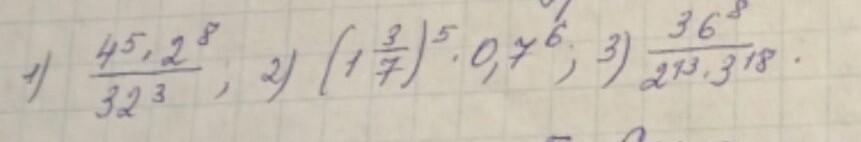 1) \frac{4^5 \cdot 2^8}{32^3}; 2) (1\frac{3}{7})^5 \cdot 0,7^6; 3) \frac{36^8}{2^{13} \cdot 3^{18}}.